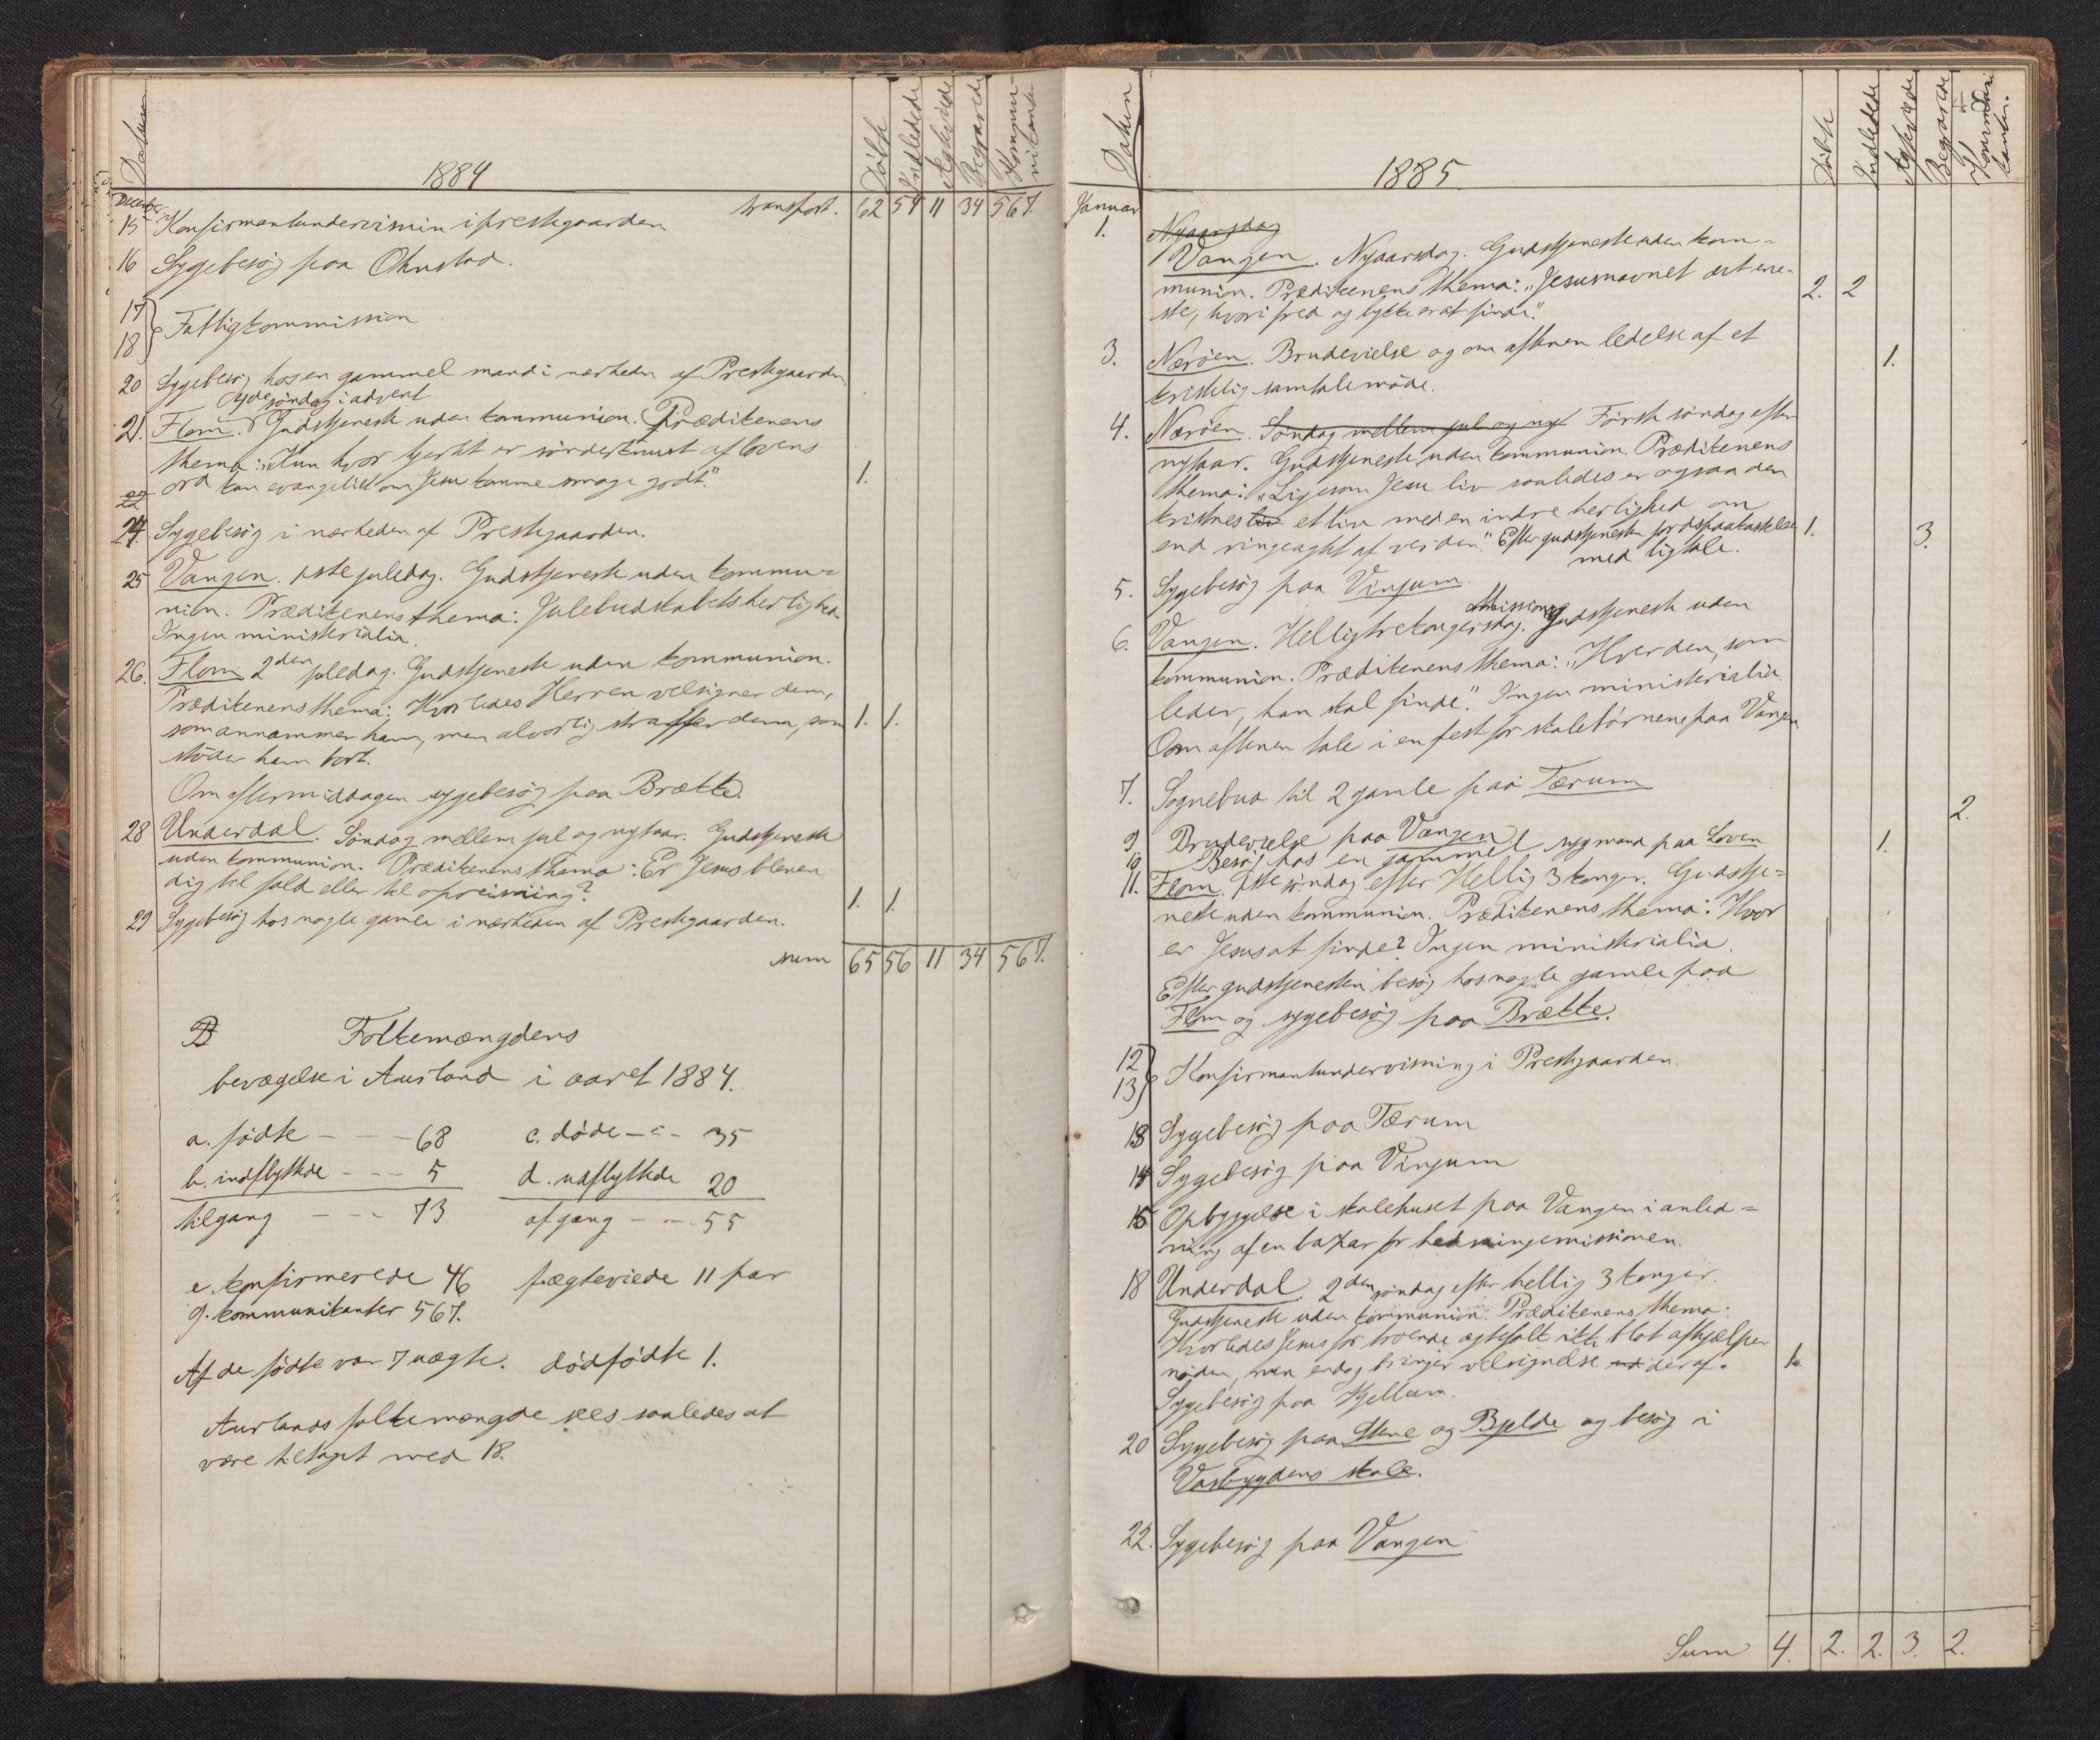 Datum
1884
Døbte
Indledede
Ægteviede
Begravede
Kommu-
nikanter
December
transport. 62 54 11 34 567.
15 Konfirmantundervisnin i prestegaarden
16 Sygebesøg paa Ohnstad.
17
18 } Fattigkommission
20 Sygebesøg hos en gammel mand i nærheden af Prestegaarden
4de søndag i advent
21. Flom. Gudstjeneste uden kommunion. Prædikenens
thema: "Kun hvor hjertet er sønderknust af lovens
22 ord kan evangeliet om Jesu komme smage godt." 1.
24. Sygebesøg i nærheden af Prestegaarden.
25 Vangen. 1ste juledag. Gudstjeneste uden kommu-
nion. Prædikenens thema: Julebudskabets herlighed
Ingen ministerialia.
26. Flom 2den juledag. Gudstjeneste uden kommunion.
Prædikenens thema: Hvorledes Herren velsigner dem,
som annammer ham, men alvorlig straffer dem, som 1. 1.
støder ham bort.
Om eftermiddagen sygebesøg paa Brætte.
28 Underdal. Søndag mellem jul og nytaar. Gudstjeneste
uden kommunion. Prædikenens thema: Er Jesus bleven
dig til fald eller til opreisning? 1. 1.
29 Sygebesøg hos nogle gamle i nærheden af Prestegaarden.
sum 65 56 11 34 567.
B Folkemængdens
bevægelse i Aurland i aaret 1884.
a. fødte - - - 68 c. døde - - - 35
b. indflyttede - - - 5 d. udflyttede 20
tilgang - - - 73 afgang - - - 55
e. konfirmerede 46 f. ægteviede 11 par
g. kommunikanter 567.
Af de fødte var 7 uægte. dødfødte 1.
Aurlands folkemængde sees saaledes at
være tiltaget med 18.
Datum
1885.
Døbte
Indledede
Ægteviede
Begravede
Kommuni-
kanter.
Januar
1. Nyaarsdag
Vangen. Nyaarsdag. Gudstjeneste uden kom-
munion. Prædikenens thema: "Jesusnavnet det ene- 2. 2
ste, hvori fred og lykke er at finde."
3. Nærøen. Brudevielse og om aftenen ledelse af et 1.
kristelig samtalemøde.
4. Nærøen. Søndag mellem jul og ny Første søndag efter
nytaar. Gudstjeneste uden kommunion. Prædikenens
thema: "Ligesom Jesu liv saaledes er ogsaa den
kristnes liv et liv med en indre herlighed om
end ringeagtet af verden." Efter gudstjenesten jordspaakastelse 1. 3.
med ligtale.
5. Sygebesøg paa Vinjum.
6. Vangen. Helligtrekongersdag. Missionsgudstjeneste uden
kommunion. Prædikenens thema: "Hver den, som
leder, han skal finde." Ingen ministerialia.
Om aftenen tale i en fest for skolebørnene paa Vangen.
7. Sognebud til 2 gamle paa Tærum 2.
9 Brudevielse paa Vangen 1.
10 Besøg hos en gammel syg mand paa Loven
11. Flom. 1ste søndag efter Hellig 3 konger. Gudstje-
neste uden kommunion. Prædikenens thema: Hvor
er Jesus at finde? Ingen ministerialia.
Efter gudstjenesten besøg hos nogle gamle paa
Flom og sygebesøg paa Brætte.
12
13 } Konfirmantundervisning i Prestegaarden.
13 Sygebesøg paa Tærum
14 Sygebesøg paa Vinjum
15 Opbyggelse i skolehuset paa Vangen i anled-
ning af en bazar for hedningemissionen.
18 Underdal. 2den søndag efter hellig 3 konger.
Gudstjeneste uden kommunion. Prædikenens thema:
Hvorledes Jesus for troende ægtefolk ikke blot afhjælper
nøden, men endog bringer velsignelse ud deraf. 1.
Sygebesøg paa Hjellum.
20 Sygebesøg paa Stene og Bjelde og besøg i
Vasbygdens skole.
22. Sygebesøg paa Vangen
Sum 4. 2. 2. 3. 2.